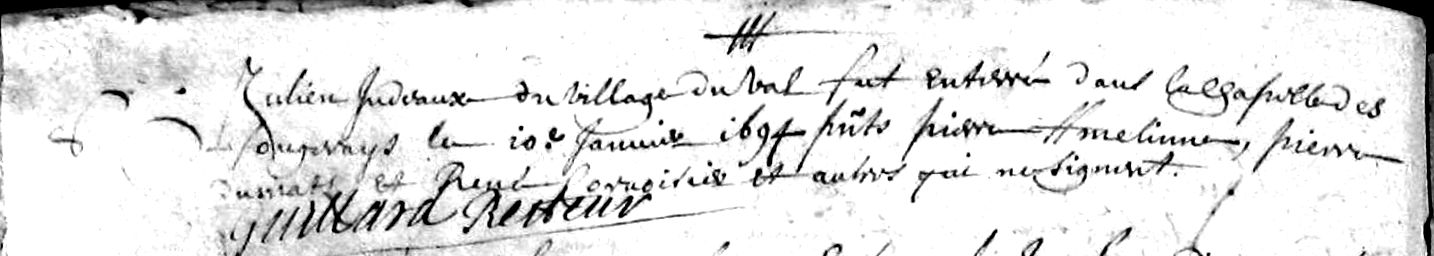 Julien Judeaux du village du Val fut enterré dans la chapelle des
Longrays le 10e Janvier 1694 pñts pierre Hmelinne, pierre
dumats et René Cornoisier et autres qui ne signent.
guillard Recteur